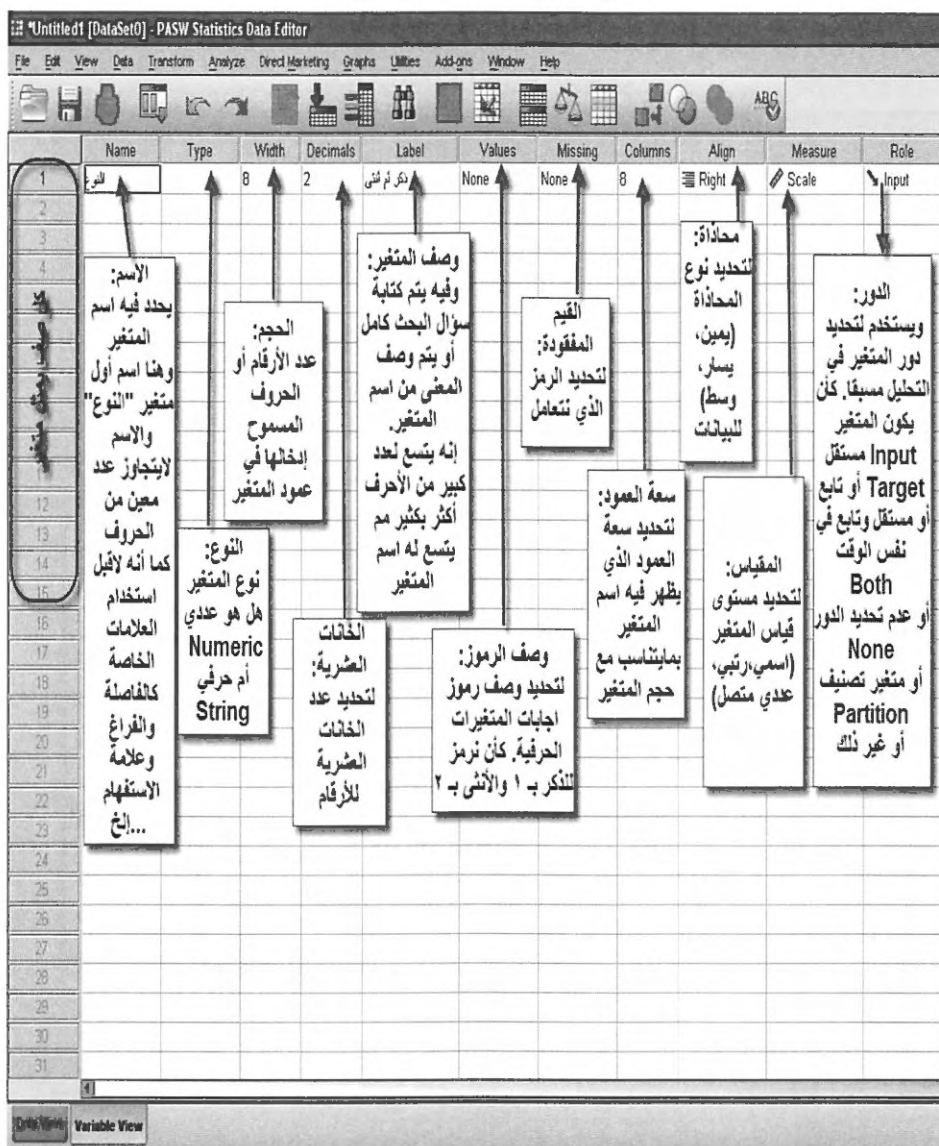 *Untitled1 [DataSet0] - PASW Statistics Data Editor
File Edit View Data Transform Analyze Direct Marketing Graphs Utilities Add-ons Window Help
ABC
Name Type Width Decimals Label Values Missing Columns Align Measure Role
1 النوع 8 2 ذكر أم أنثى None None 8 Right Scale Input
2
3
4
12
13
14
15
16
17
18
19
20
21
22
23
24
25
26
27
28
29
30
31
كل صف يمثل متغير
الاسم:
يحدد فيه اسم
المتغير
وهنا اسم أول
متغير "النوع"
والاسم
لايتجاوز عدد
معين من
الحروف
كما أنه لاقبل
استخدام
العلامات
الخاصة
كالفاصلة
والفراغ
وعلامة
الاستفهام
...إلخ
النوع:
نوع المتغير
هل هو عددي
Numeric
أم حرفي
String
الحجم:
عدد الأرقام أو
الحروف
المسموح
إدخالها في
عمود المتغير
الخانات
العشرية:
لتحديد عدد
الخانات
العشرية
للأرقام
وصف المتغير:
وفيه يتم كتابة
سؤال البحث كامل
أو يتم وصف
المعنى من اسم
المتغير.
إنه يتسع لعدد
كبير من الأحرف
أكثر بكثير مم
يتسع له اسم
المتغير
وصف الرموز:
لتحديد وصف رموز
اجابات المتغيرات
الحرفية. كأن نرمز
للذكر بـ ١ والأنثى بـ ٢
القيم
المفقودة:
لتحديد الرمز
الذي نتعامل
سعة العمود:
لتحديد سعة
العمود الذي
يظهر فيه اسم
المتغير
بمايتناسب مع
حجم المتغير
محاذاة:
لتحديد نوع
المحاذاة
(يمين،
يسار،
وسط)
للبيانات
المقياس:
لتحديد مستوى
قياس المتغير
(اسمي،رتبي،
عددي متصل)
الدور:
ويستخدم لتحديد
دور المتغير في
التحليل مسبقا. كأن
يكون المتغير
مستقل Input
أو تابع Target
أو مستقل وتابع في
نفس الوقت
Both
أو عدم تحديد الدور
None
أو متغير تصنيف
Partition
أو غير ذلك
Data View Variable View